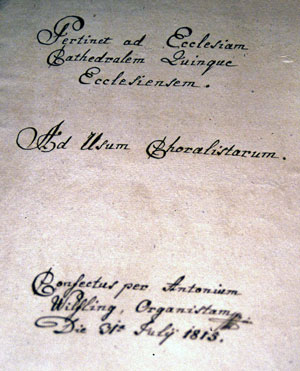 Pertinet ad Ecclesiam
Cathedralem Quinque
Ecclesiensem.
Ad Usum Choralistarum.
Confectus per Antonium
Wilfling, Organistam
Die 31a Julÿ 1813.